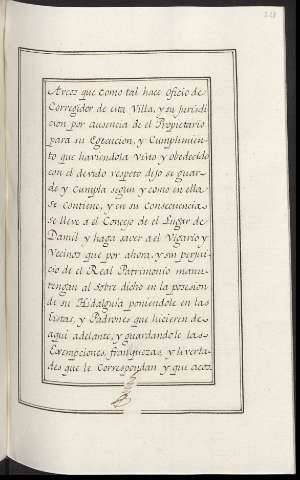 Arcos que como tal hace oficio de
Corregidor de esta Villa, y su Jurisdi
cion por ausencia de el Propietario
para su Egecucion, y Cumplimien
to que haviendola Visto y obedecido
con el devido respeto dijo se guar
de y Cumpla segun y como en ella
se Contiene, y en su Consecuencia
se lleve a el Concejo de el Lugar de
y haga saver a el Vigario y
Vecinos que por ahora, y sin perjui
cio de el Real Patrimonio manu
tengan al sobre dicho en la posesion
de su Hidalguia poniendole en las
Listas, y Padrones que hicieren de
aqui adelante, y guardandole las
Exempciones, franquezas, y liverta
des que le Correspondan y que acos